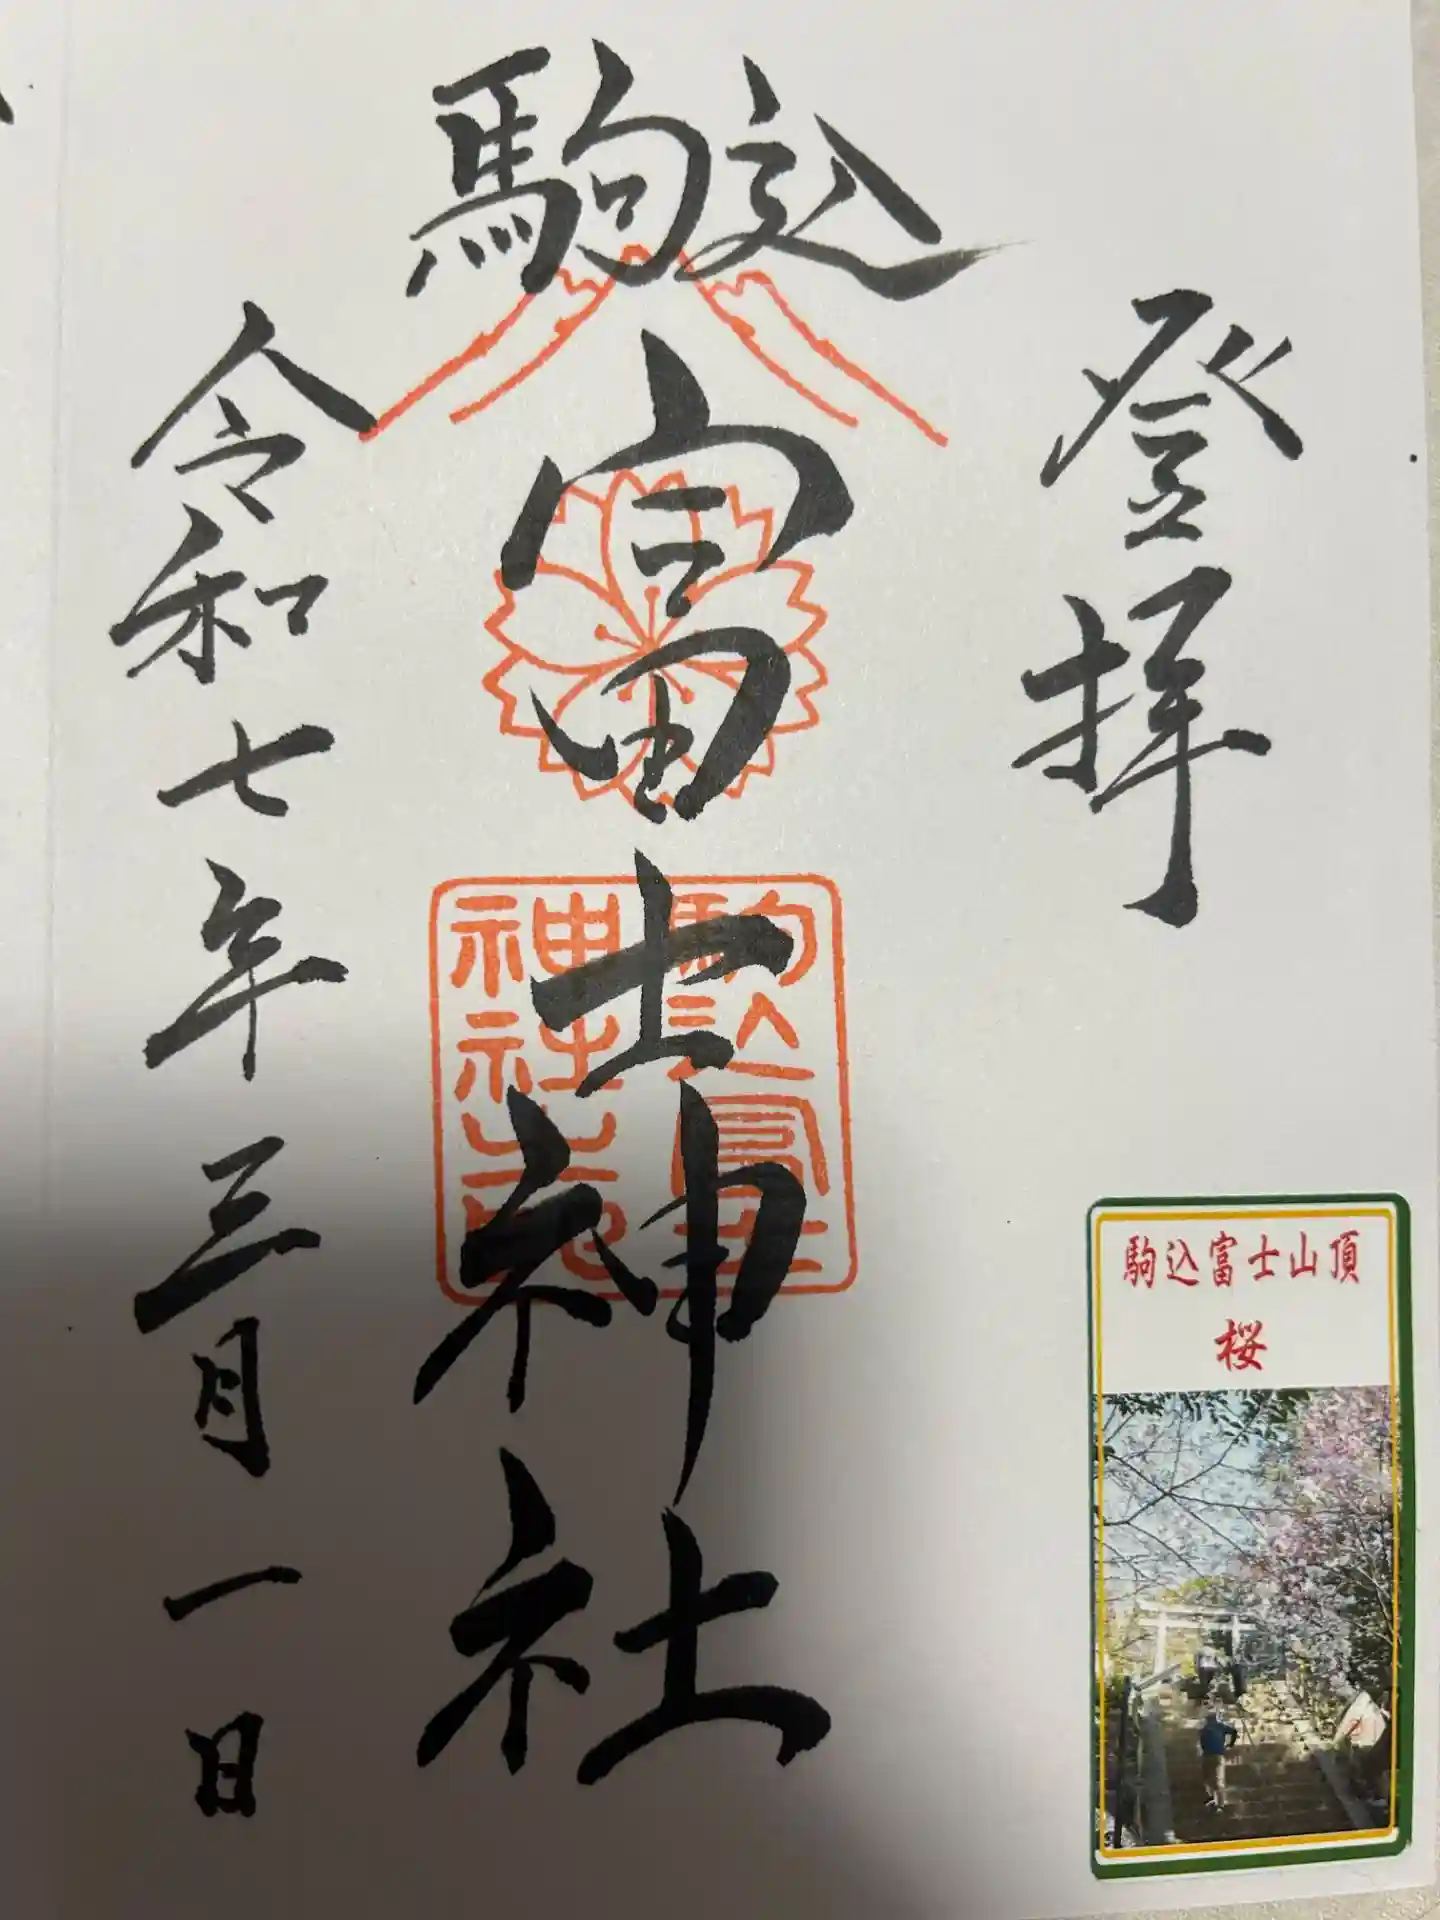 登拝
駒込
富士神社
令和七年三月一日
駒込冨士
神社之印
駒込富士山頂
桜